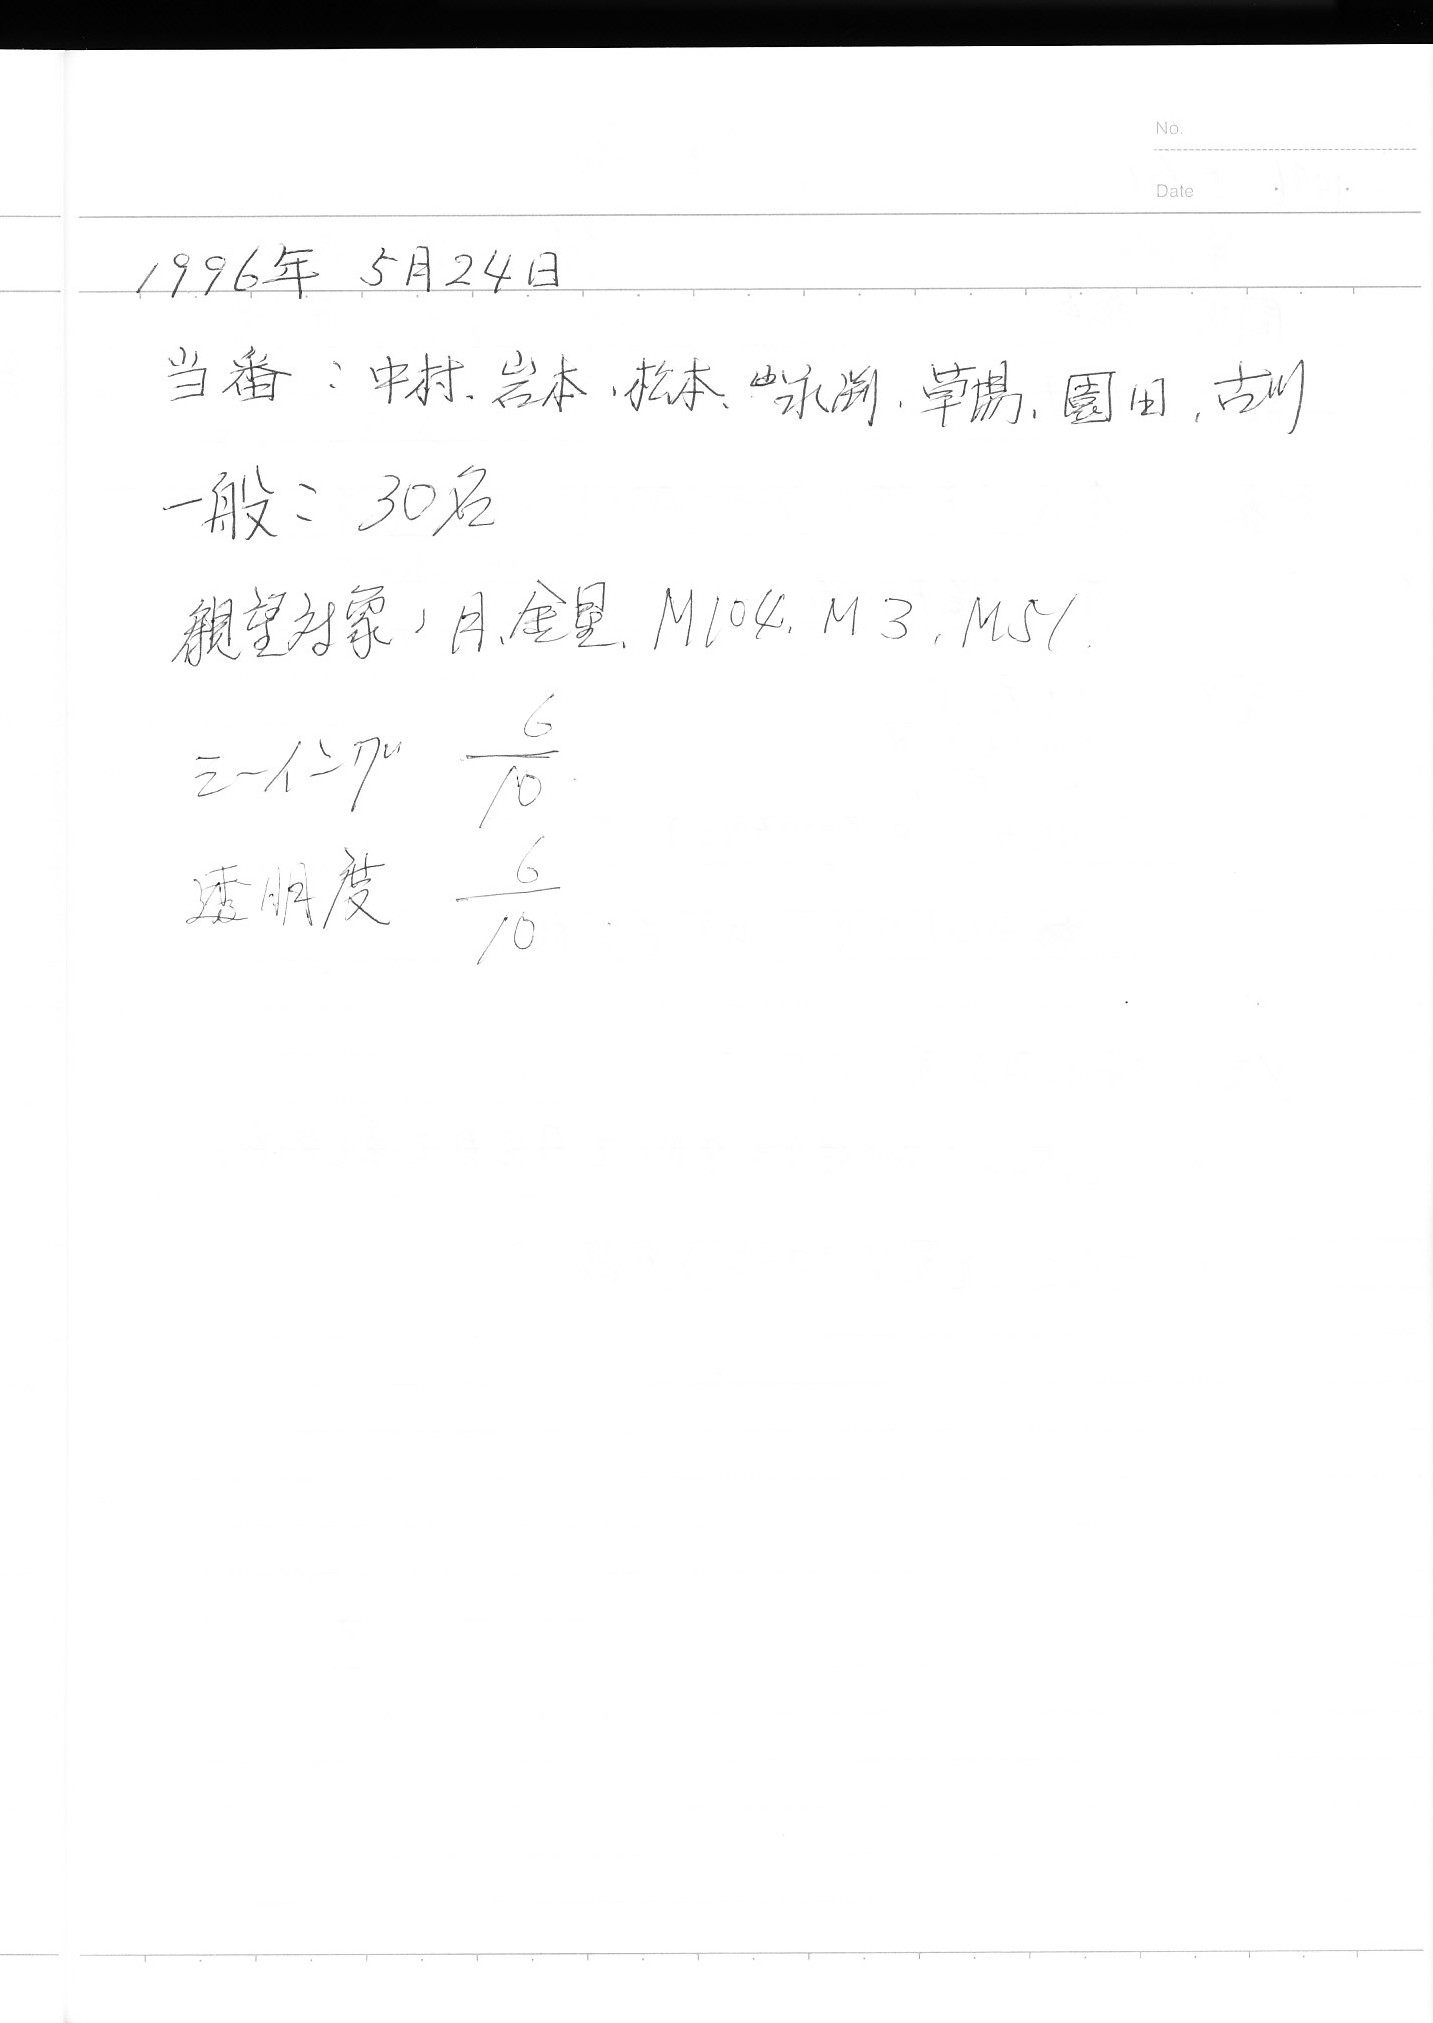 No.
Date
1996年 5月24日
当番：中村、岩本、松本、永渕、草場、園田、古川
一般：30名
観望対象、月、金星、M104、M3、M51.
シーイング 6/10
透明度 6/10